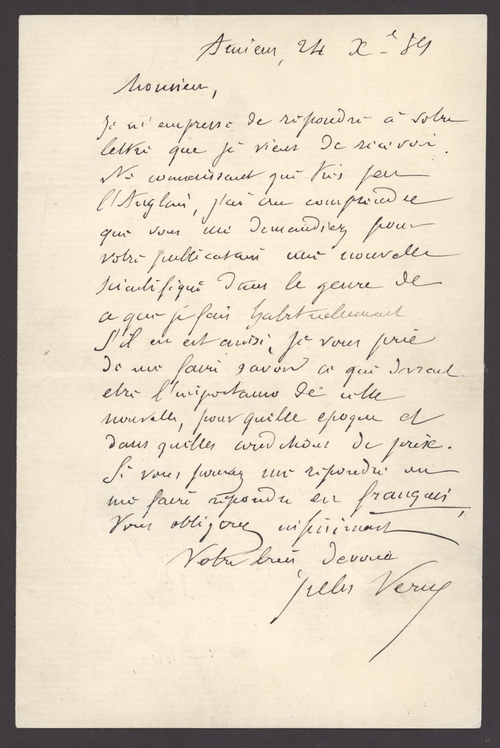 Amiens, 24 Xe 89
Monsieur,
Je m'empresse de répondre à votre
lettre que je viens de recevoir.
Ne connaissant que très peu
l'Anglais, j'ai cru comprendre
que vous me demandiez pour
votre publication une nouvelle
scientifique dans le genre de
ce que je fais habituellement
S'il en est ainsi, je vous prie
de me faire savoir ce que devrait
etre l'importance de cette
nouvelle, pour quelle epoque et
dans quelles conditions de prix.
Si vous pouvez me répondre ou
me faire répondre en français,
vous obligerez infiniment
Votre très devoué
Jules Verne